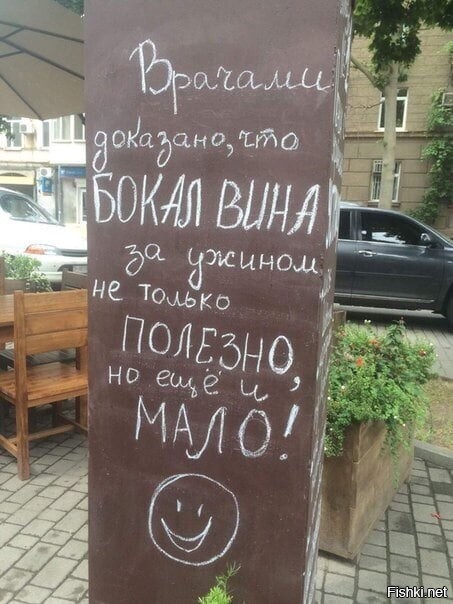 Врачами
доказано, что
БОКАЛ ВИНА
за ужином
не только
ПОЛЕЗНО,
но ещё и
МАЛО!
Fishki.net